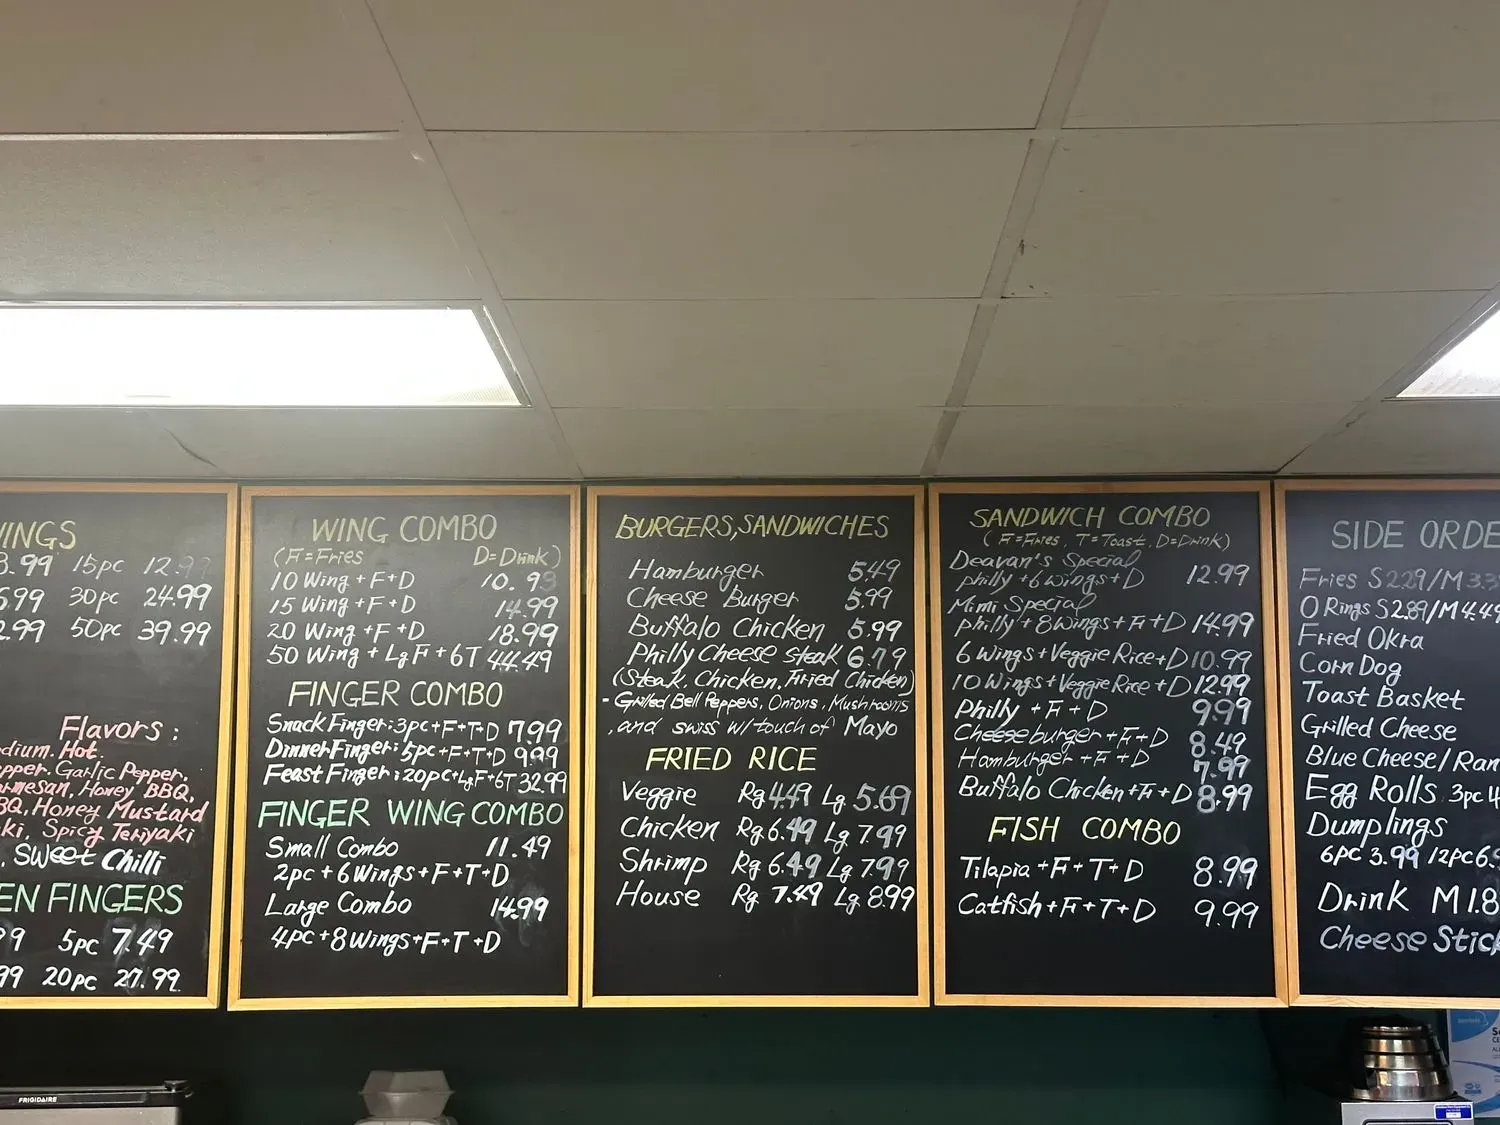 WINGS
.99 15pc 12.99
.99 30pc 24.99
.99 50pc 39.99
Flavors:
Hot
Garlic Pepper,
Honey BBQ,
Honey Mustard
Spicy Teriyaki
, Sweet Chilli
FINGERS
5pc 7.49
20pc 27.99
WING COMBO
(F=Fries D=Drink)
10 Wing+F+D 10.99
15 Wing+F+D 14.99
20 Wing+F+D 18.99
50 Wing + Lg F + 6T 44.49
FINGER COMBO
Snack Finger: 3pc+F+T+D 7.99
Dinner Finger: 5pc+F+T+D 9.99
Feast Finger: 20pc+LgF+6T 32.99
FINGER WING COMBO
Small Combo 11.49
2pc+6Wings+F+T+D
Large Combo 14.99
4pc+8Wings+F+T+D
BURGERS, SANDWICHES
Hamburger 5.49
Cheese Burger 5.99
Buffalo Chicken 5.99
Philly Cheese Steak 6.79
(Steak, Chicken, Fried Chicken)
- Grilled Bell Peppers, Onions, Mushrooms
, and swiss w/ touch of Mayo
FRIED RICE
Veggie Rg 4.49 Lg 5.69
Chicken Rg 6.49 Lg 7.99
Shrimp Rg 6.49 Lg 7.99
House Rg 7.49 Lg 8.99
SANDWICH COMBO
(F=Fries, T=Toast, D=Drink)
Deavan's Special
philly+6wings+D 12.99
Mimi Special
philly+8wings+F+D 14.99
6 Wings+Veggie Rice+D 10.99
10 Wings+Veggie Rice+D 12.99
Philly +F+D 9.99
Cheeseburger+F+D 8.49
Hamburger+F+D 7.99
Buffalo Chicken+F+D 8.99
FISH COMBO
Tilapia+F+T+D 8.99
Catfish+F+T+D 9.99
SIDE
Fries S 2.29/M 3.3
O Rings S 2.89/M 4.49
Fried Okra
Corn Dog
Toast Basket
Grilled Cheese
Blue Cheese/
Egg Rolls 3pc
Dumplings
6pc 3.99 12pc 6.
Drink M 1.8
Cheese
FRIGIDAIRE